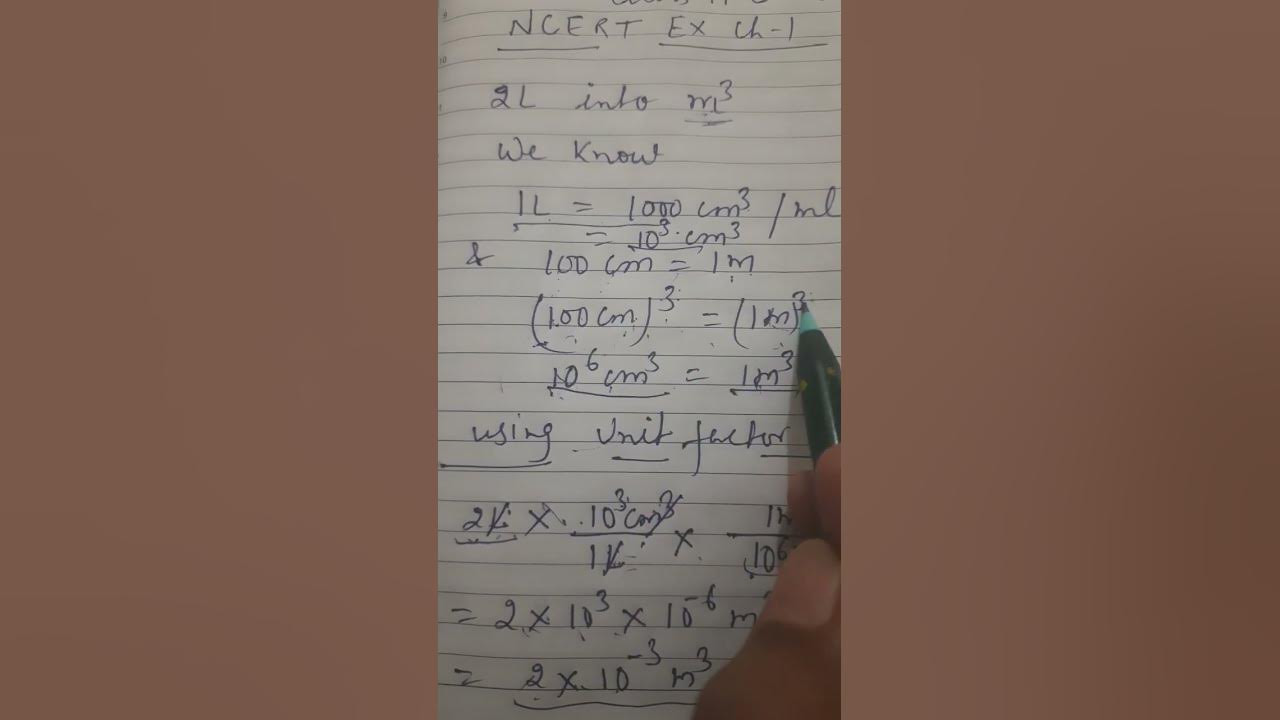 NCERT EX Ch-1
2L into m³
We know
1L = 1000 cm³ / ml
= 10³ cm³
& 100 cm = 1m
(100 cm)³ = (1m)³
10⁶ cm³ = 1m³
using Unit factor
2L × 10³cm³ / 1L × 1m / 10⁶
= 2 × 10³ × 10⁻⁶ m
= 2 × 10⁻³ m³